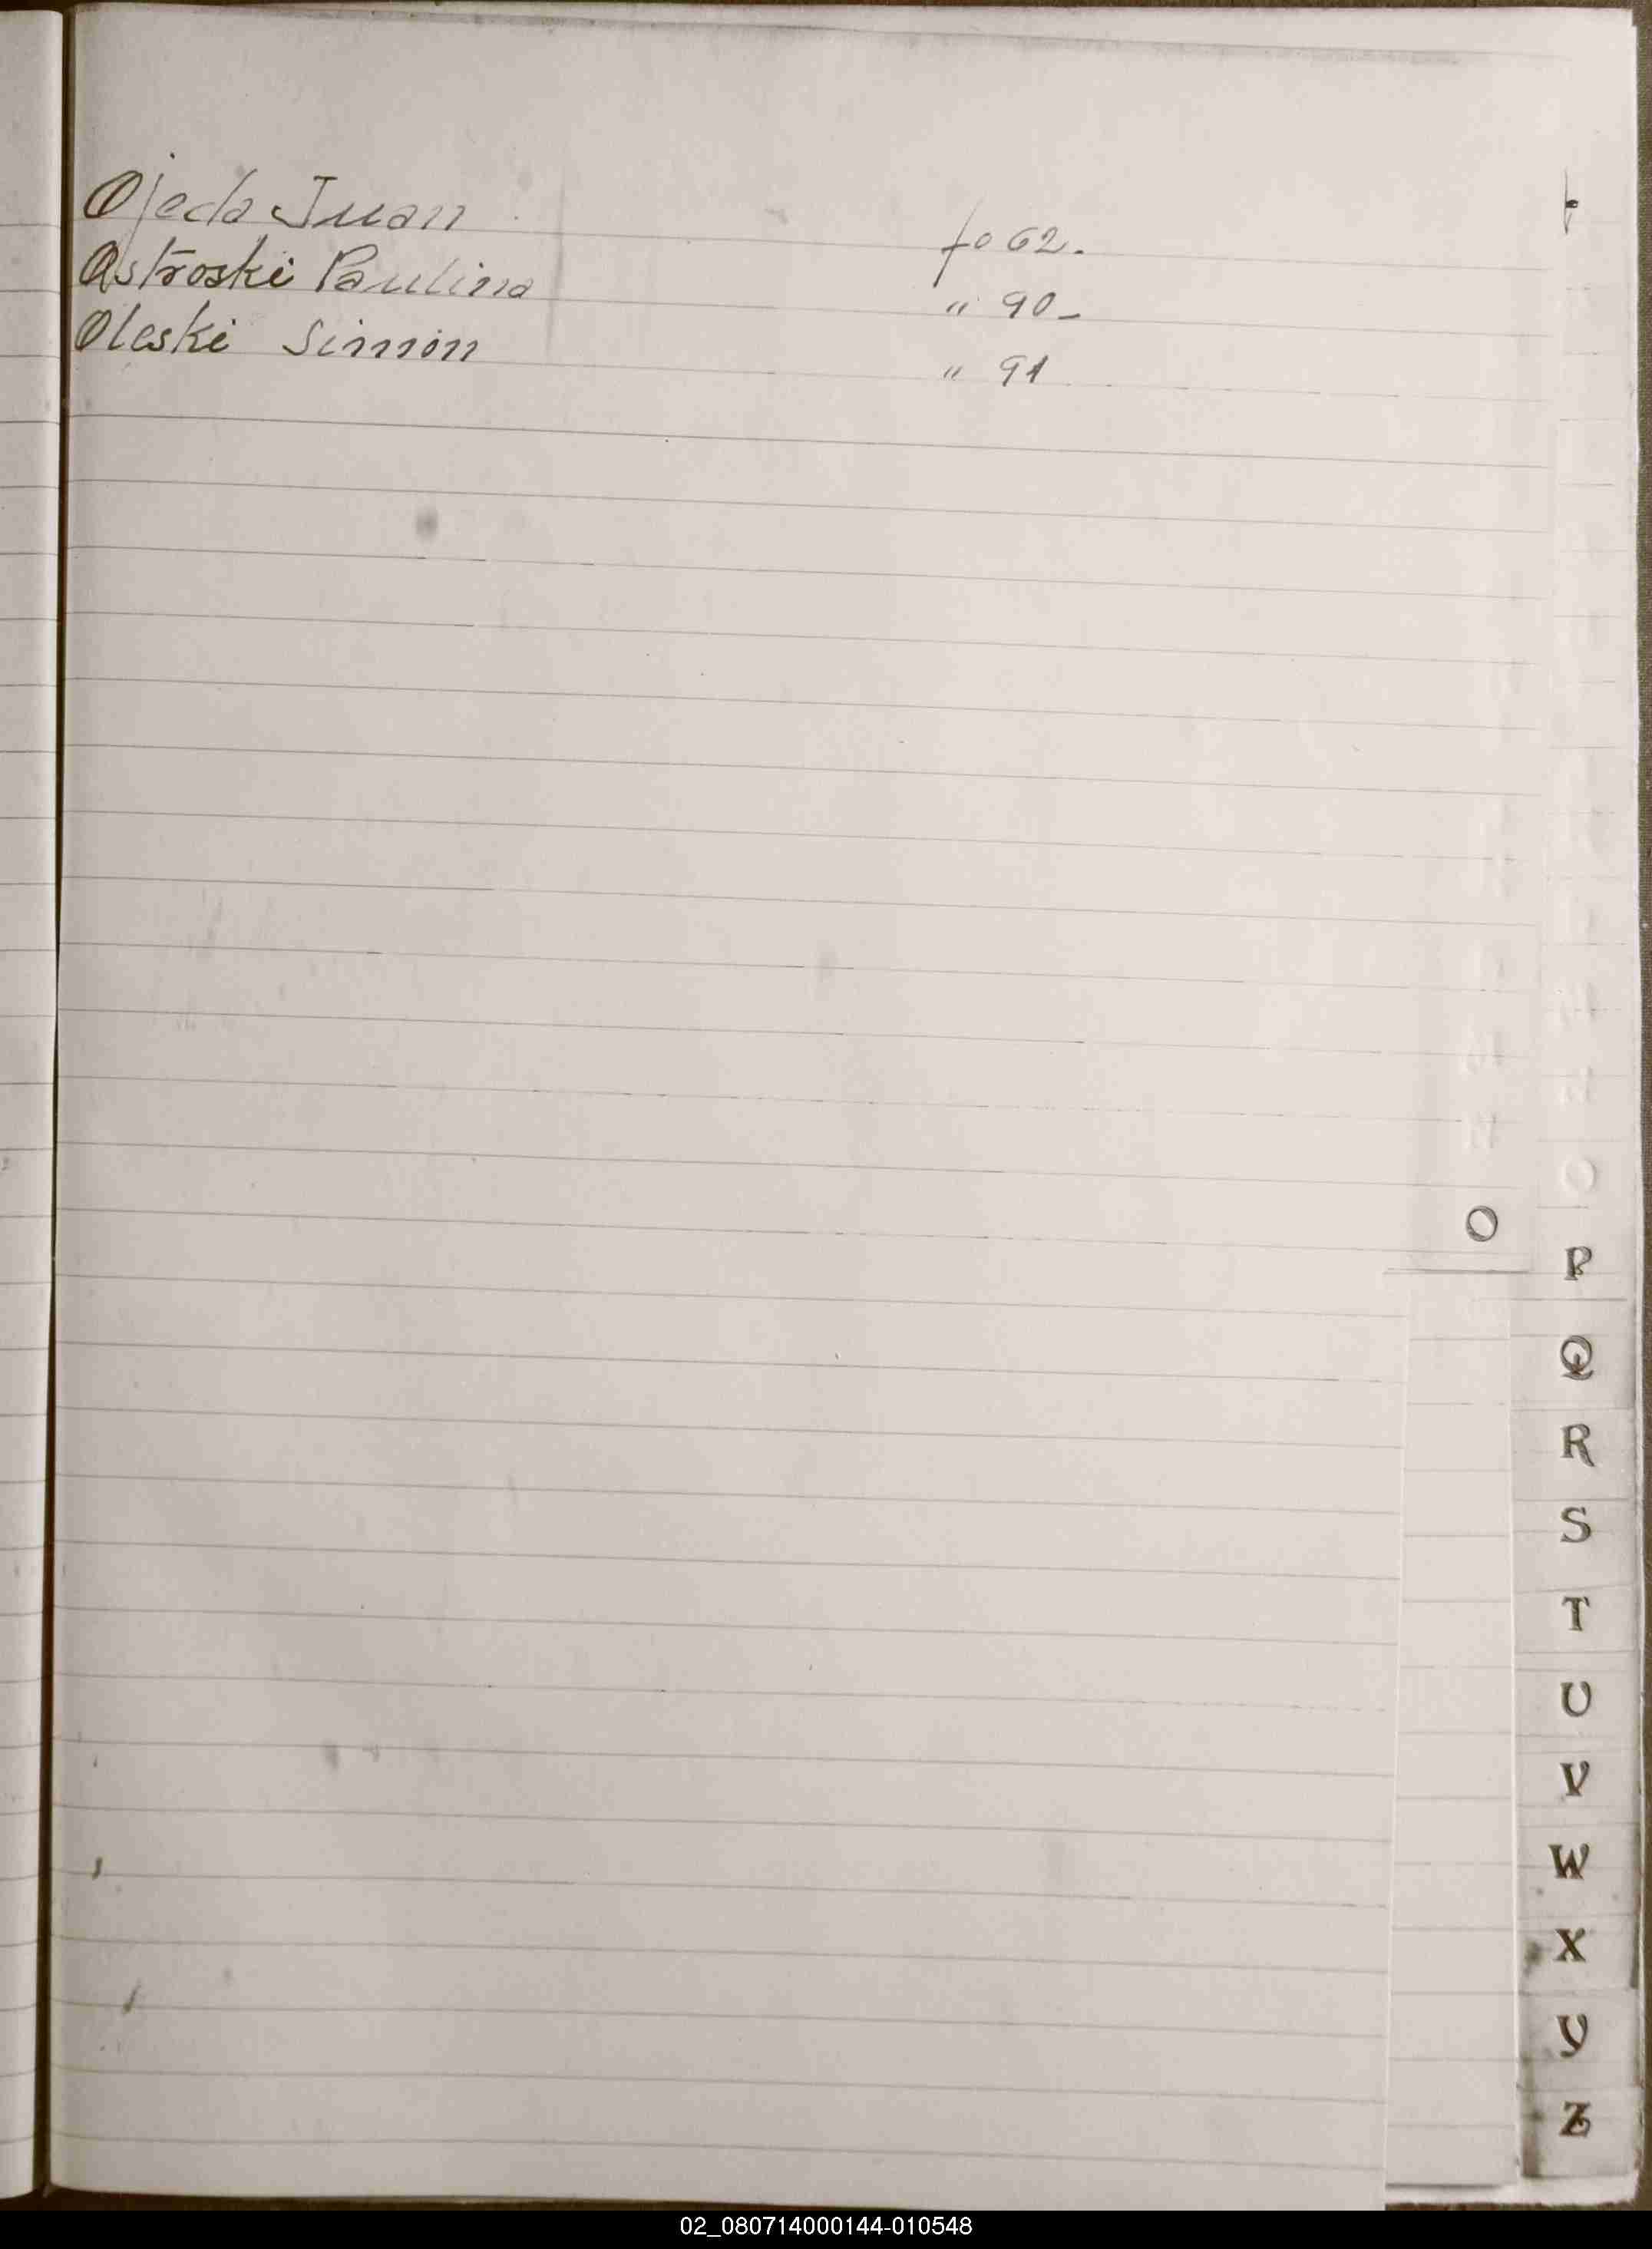 Ojeda Juan fo 62.
Ostroski Paulina " 90-
Oleski Simón " 91
O
P
Q
R
S
T
U
V
W
X
Y
Z
02_080714000144-010548